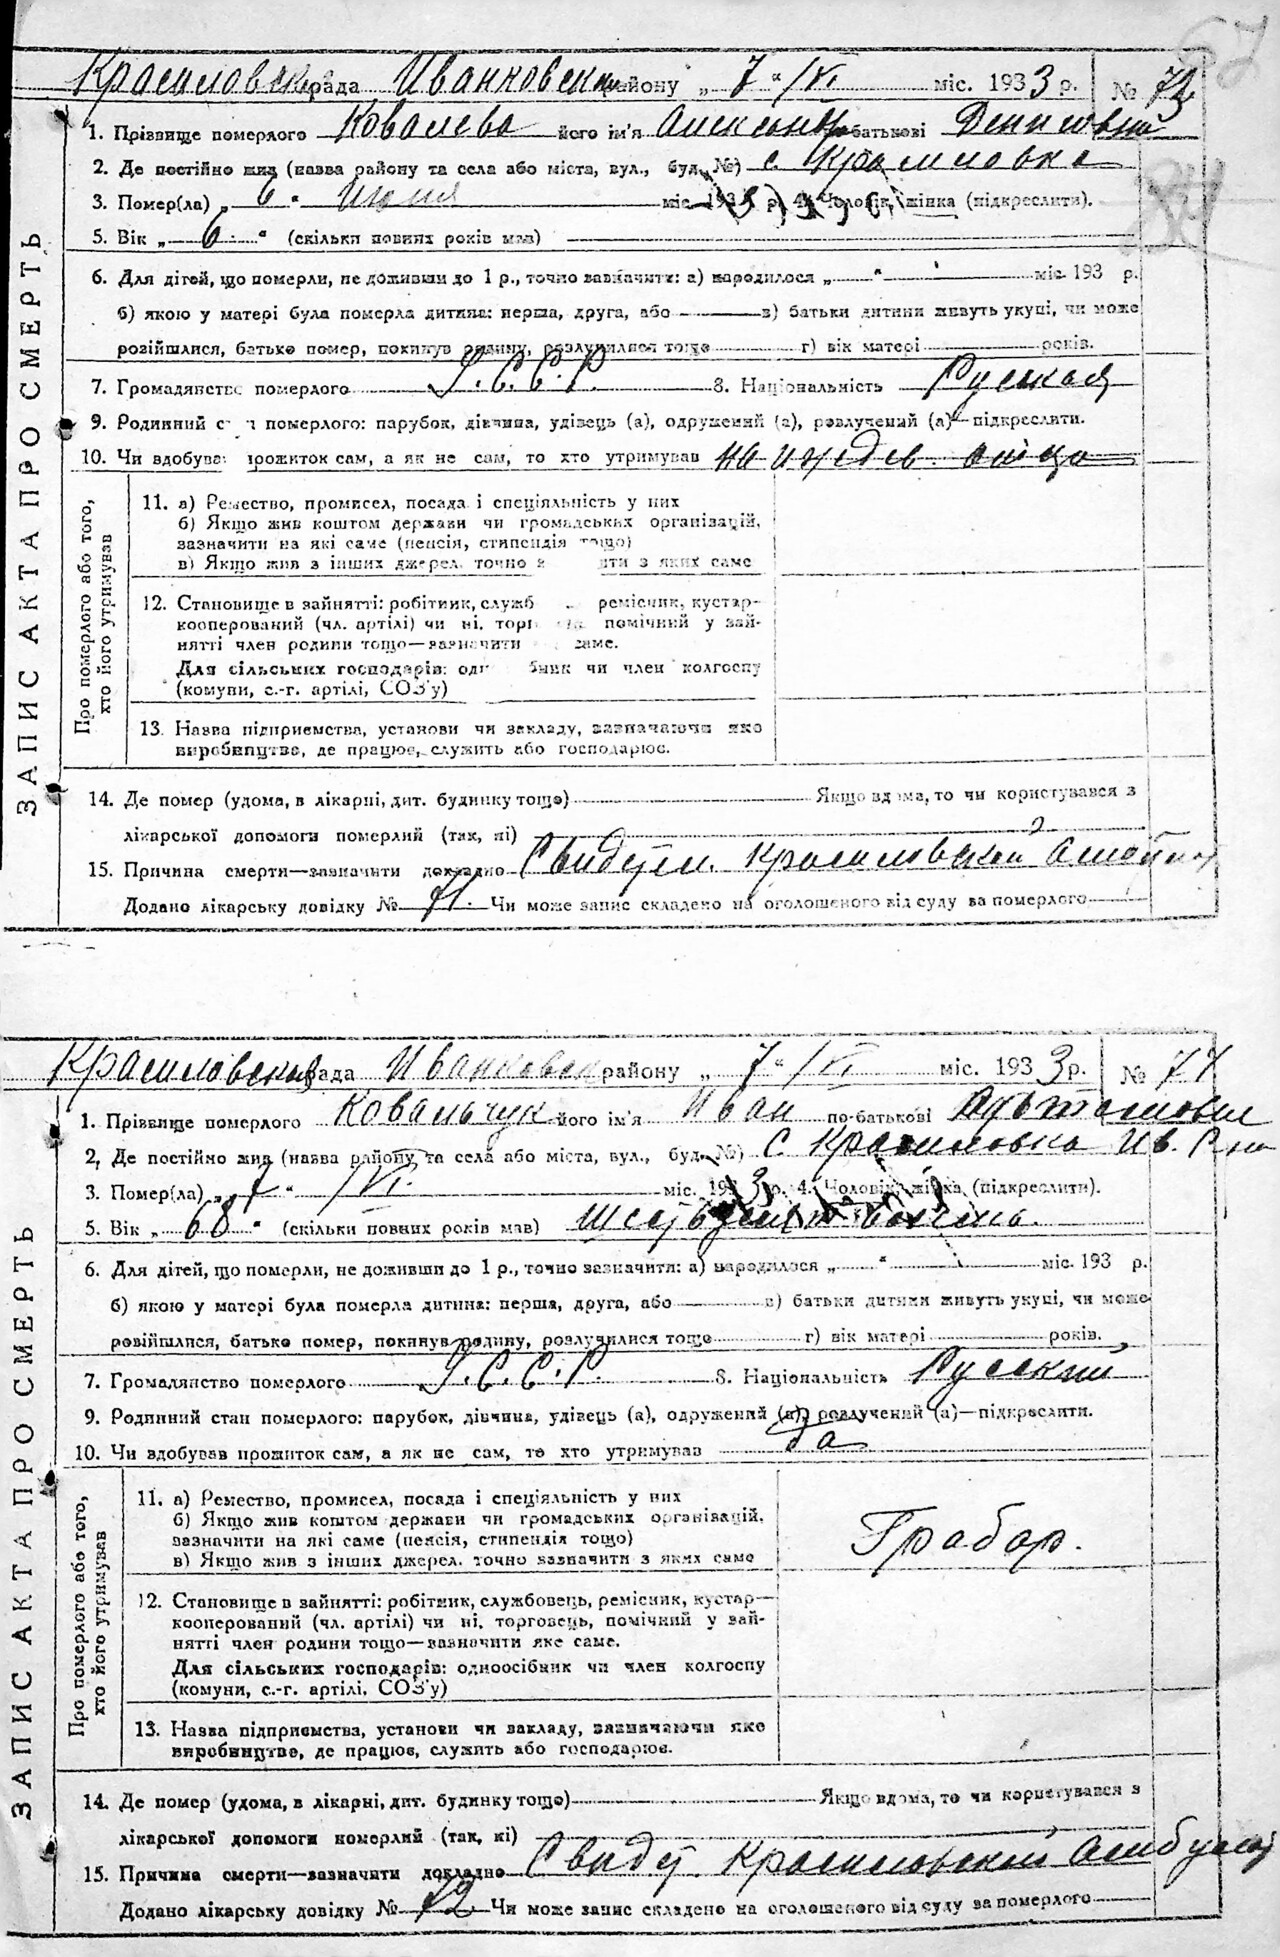 67
Красиловская рада Иванковск району „ 7 “ /VI міс. 1933 р. №
1. Прізвище померлого Ковалева його ім'я по-батькові Денисовна
84
2. Де постійно жив (назва району та села або міста, вул., буд. №) с. Красиловка
3. Помер(ла) „ 6 “ Июня міс. 193 р. 4. Чоловік, жінка (підкреслити).
5. Вік „ 6 “ (скільки повних років мав)
6. Для дітей, що померли, не доживши до 1 р., точно зазначити: а) народилося „ “ міс. 193 р.
б) якою у матері була померла дитина: перша, друга, або в) батьки дитини живуть укупі, чи може
розійшлися, батько помер, покинув родину, розлучилися тощо г) вік матері років.
7. Громадянство померлого У.С.С.Р. 8. Національність Руская
9. Родинний с н померлого: парубок, дівчина, удівець (а), одружений (а), розлучений (а)—підкреслити.
10. Чи вдобува прожиток сам, а як не сам, то хто утримував на иждев. отца
ЗАПИС АКТА ПРО СМЕРТЬ
Про померлого або того,
хто його утримував
11. а) Ремество, промисел, посада і спеціяльність у них
б) Якщо жив коштом держави чи громадських організацій,
зазначити на які саме (пенсія, стипендія тощо)
в) Якщо жив з інших джерел, точно з ити з яких саме
12. Становище в зайнятті: робітник, служб ремісник, кустар—
кооперований (чл. артілі) чи ні, торг помічний у зай-
нятті член родини тощо—зазначити саме.
Для сільських господарів: од бник чи член колгоспу
(комуни, с.-г. артілі, СОЗ'у)
13. Назва підприємства, установи чи закладу, зазначаючи яке
виробництво, де працює, служить або господарює.
14. Де помер (удома, в лікарні, дит. будинку тощо) Якщо вдома, то чи користувався з
лікарської допомоги померлий (так, ні)
15. Причина смерти—зазначити докладно Свидет. Красиловской
Додано лікарську довідку № 71. Чи може запис складено на оголошеного від суду за померлого
Красиловская рада Иванковск району „ 7 “ /VI міс. 1933 р. № 77
1. Прізвище померлого Ковальчук його ім'я Иван по-батькові
2. Де постійно жив (назва району та села або міста, вул., буд. №) с. Красиловка Ив. Р-на
3. Помер(ла) „ 7 “ /VI. міс. 1933 р. 4. Чоловік, жінка (підкреслити).
5. Вік „ 68 “ (скільки повних років мав) шестьдесят восемь.
6. Для дітей, що померли, не доживши до 1 р., точно зазначити: а) народилося „ “ міс. 193 р.
б) якою у матері була померла дитина: перша, друга, або в) батьки дитини живуть укупі, чи може
розійшлися, батько помер, покинув родину, розлучилися тощо г) вік матері років.
7. Громадянство померлого У.С.С.Р. 8. Національність Русский
9. Родинний стан померлого: парубок, дівчина, удівець (а), одружений (а), розлучений (а)—підкреслити.
10. Чи вдобував прожиток сам, а як не сам, то хто утримував да
ЗАПИС АКТА ПРО СМЕРТЬ
Про померлого або того,
хто його утримував
11. а) Ремество, промисел, посада і спеціяльність у них
б) Якщо жив коштом держави чи громадських організацій,
зазначити на які саме (пенсія, стипендія тощо)
в) Якщо жив з інших джерел, точно зазначити з яких саме
Грабар.
12. Становище в зайнятті: робітник, службовець, ремісник, кустар—
кооперований (чл. артілі) чи ні, торговець, помічний у зай-
нятті член родини тощо—зазначити яке саме.
Для сільських господарів: одноосібник чи член колгоспу
(комуни, с.-г. артілі, СОЗ'у)
13. Назва підприємства, установи чи закладу, зазначаючи яке
виробництво, де працює, служить або господарює.
14. Де помер (удома, в лікарні, дит. будинку тощо) Якщо вдома, то чи користувався з
лікарської допомоги померлий (так, ні)
15. Причина смерти—зазначити докладно Свидет. Красиловской
Додано лікарську довідку № 72 Чи може запис складено на оголошеного від суду за померлого